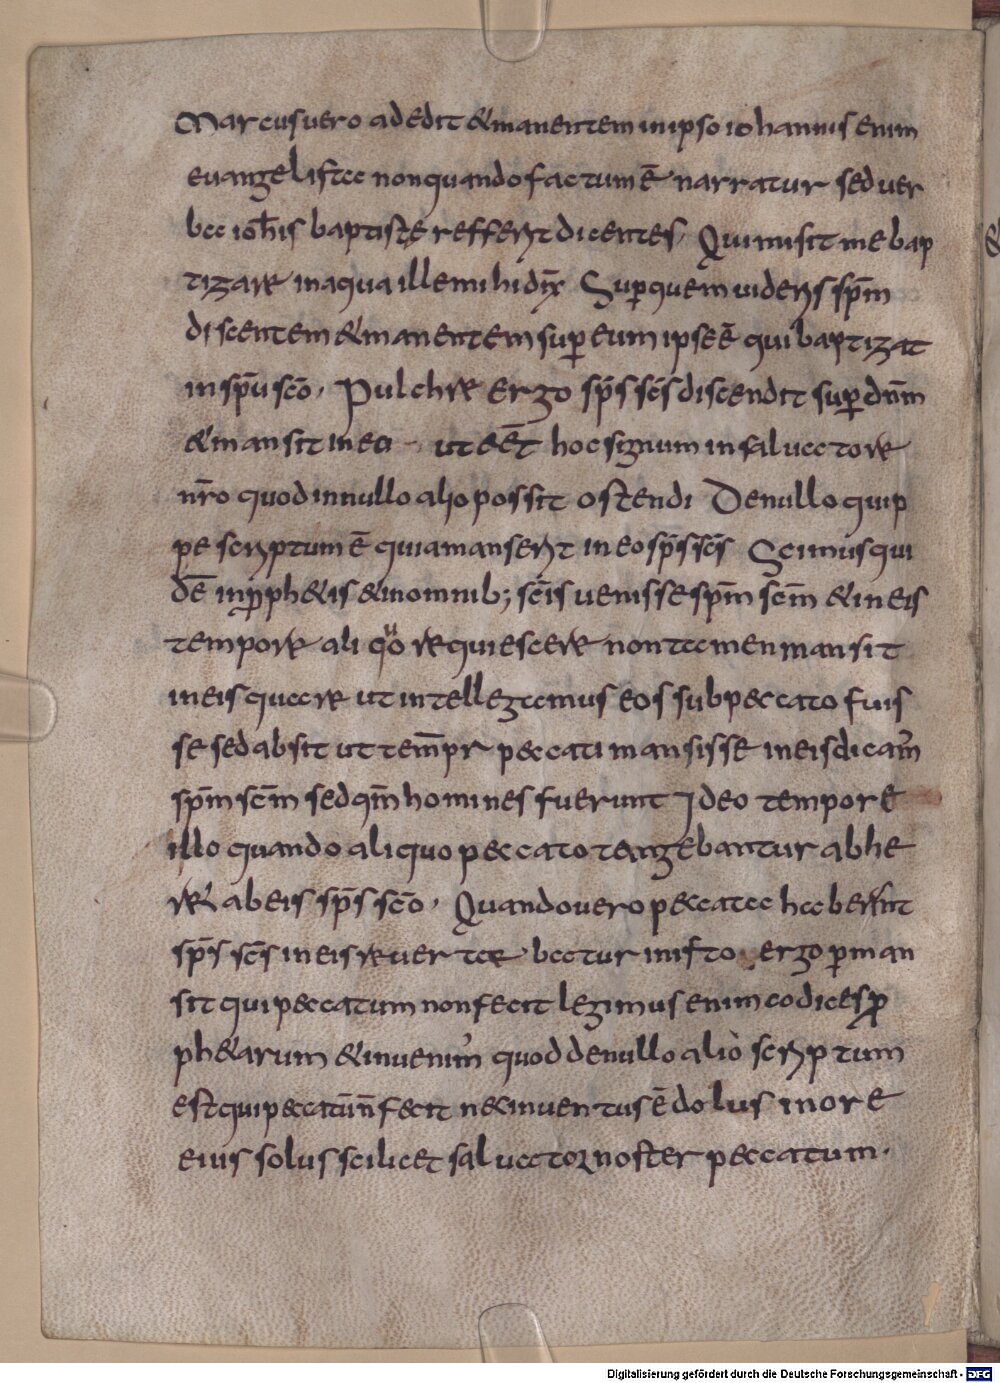 Marcus vero addedit & manentem in ipso iohannis enim
evangelista non quando factum ē narratur sed ver
ba ioh̄is baptistę refferent dicentes, Qui misit me bap
tizare in aqua ille mihi dix̄ Super quem videris sp̄m
discentem & manentem super eum ipse ē qui baptizat
in sp̄u sc̄o, Pulchre ergo sp̄s sc̄s discendit super dn̄m
& mansit in eo ut eēt hoc signum in salvatore
nr̄o quod in nullo alio possit ostendi De nullo quip
pe scriptum ē quia manserit in eo sp̄s sc̄s Scimus qui
dē in pph&is & in omnib; sc̄is venisse sp̄m sc̄m & in eis
tempore aliquo requiescere non tamen mansit
in eis quare ut intellegamus eos sub peccato fuis
se sed absit ut temp̄r peccati mansisse in eis dicam̄
sp̄m sc̄m sed qm̄ homines fuerunt Ideo tempore
illo quando aliquo peccato tangebantur abhe
rat ab eis sp̄s sc̄o, Quando vero peccata haberent
sp̄s sc̄s in eis reverteabatur in isto ergo perman
sit qui peccatum non fecit legimus enim codices pro
ph&arum & invenim̄ quod de nullo alio scriptum
est qui peccatū n̄ fecit nec inventus ē dolus in ore
eius solus scilicet salvator noster peccatum.
Digitalisierung gefördert durch die Deutsche Forschungsgemeinschaft - DFG